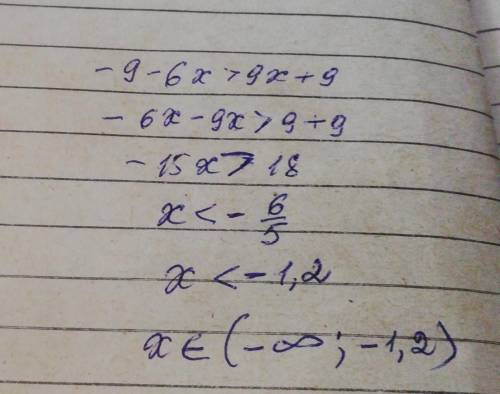 -9-6x>9x+9
-6x-9x>9+9
-15x>18
x<-6/5
x<-1,2
x∈(-∞;-1,2)